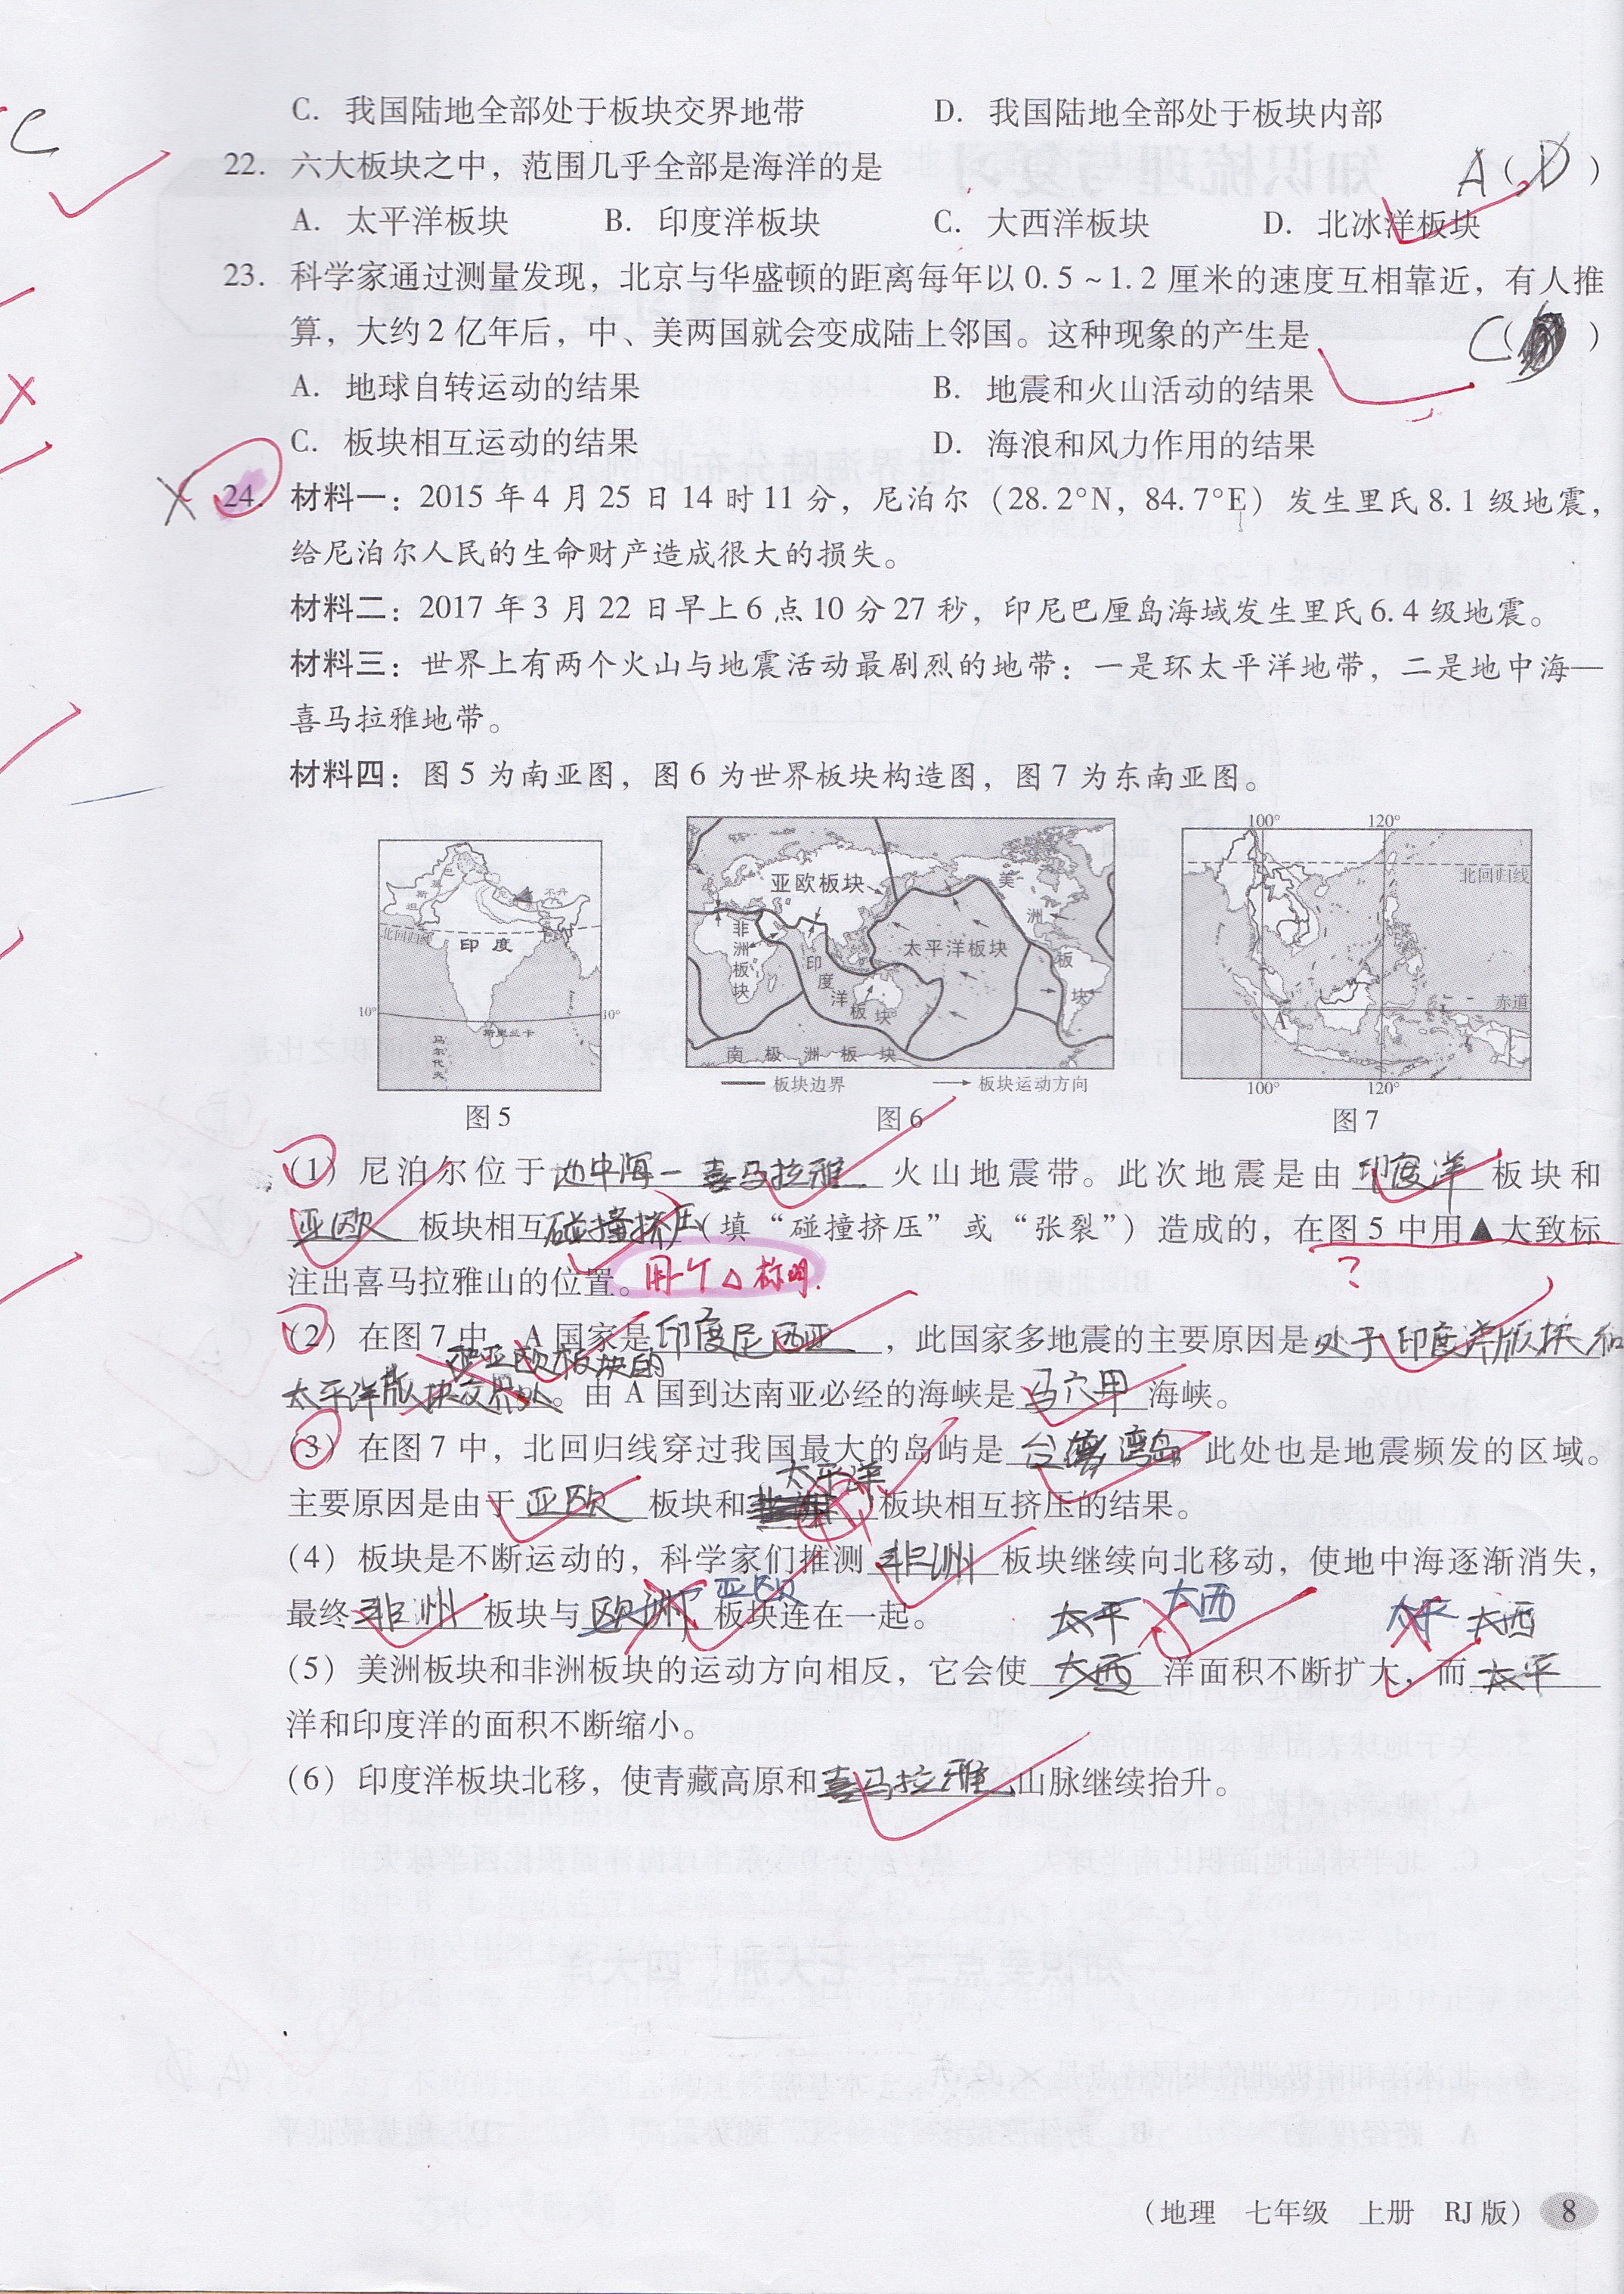 C. 我国陆地全部处于板块交界地带 D. 我国陆地全部处于板块内部
C
22. 六大板块之中，范围几乎全部是海洋的是 A（D）
A. 太平洋板块 B. 印度洋板块 C. 大西洋板块 D. 北冰洋板块
23. 科学家通过测量发现，北京与华盛顿的距离每年以 0.5~1.2 厘米的速度互相靠近，有人推
算，大约 2 亿年后，中、美两国就会变成陆上邻国。这种现象的产生是 C（ ）
A. 地球自转运动的结果 B. 地震和火山活动的结果
C. 板块相互运动的结果 D. 海浪和风力作用的结果
24. 材料一：2015 年 4 月 25 日 14 时 11 分，尼泊尔（28.2°N，84.7°E）发生里氏 8.1 级地震，
给尼泊尔人民的生命财产造成很大的损失。
材料二：2017 年 3 月 22 日早上 6 点 10 分 27 秒，印尼巴厘岛海域发生里氏 6.4 级地震。
材料三：世界上有两个火山与地震活动最剧烈的地带：一是环太平洋地带，二是地中海—
喜马拉雅地带。
材料四：图 5 为南亚图，图 6 为世界板块构造图，图 7 为东南亚图。
北回归线
印度
10° 10°
斯里兰卡
马尔代夫
图 5
亚欧板块
非洲板块
印度洋板块
太平洋板块
美洲板块
南极洲板块
板块边界 板块运动方向
图 6
100° 120°
北回归线
赤道
A
100° 120°
图 7
（1）尼泊尔位于地中海—喜马拉雅 火山地震带。此次地震是由 印度洋 板块和
亚欧 板块相互碰撞挤压（填“碰撞挤压”或“张裂”）造成的，在图 5 中用▲大致标
?
注出喜马拉雅山的位置。用个△标明.
（2）在图 7 中，A 国家是印度尼西亚，此国家多地震的主要原因是处于印度洋版块和
和亚欧板块的
太平洋版块交界处。由 A 国到达南亚必经的海峡是 马六甲 海峡。
（3）在图 7 中，北回归线穿过我国最大的岛屿是 台湾岛 此处也是地震频发的区域。
太平洋
主要原因是由于 亚欧 板块和 板块相互挤压的结果。
（4）板块是不断运动的，科学家们推测 非洲 板块继续向北移动，使地中海逐渐消失，
亚欧
最终 非洲 板块与 欧洲 板块连在一起。
太平 大西 太平 大西
（5）美洲板块和非洲板块的运动方向相反，它会使 大西 洋面积不断扩大，而 太平
洋和印度洋的面积不断缩小。
（6）印度洋板块北移，使青藏高原和喜马拉雅山脉继续抬升。
（地理 七年级 上册 RJ 版） 8